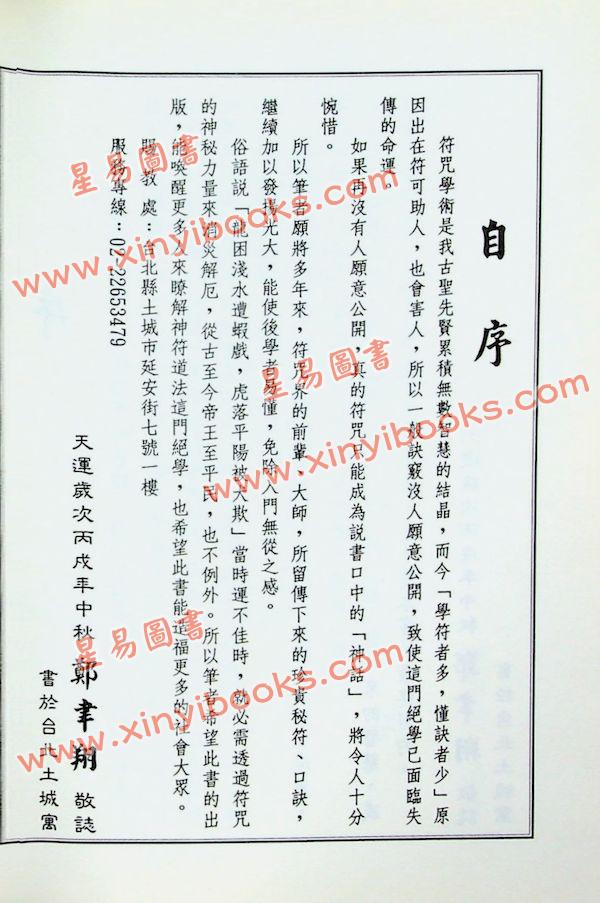 自序
符咒學術是我古聖先賢累積無數智慧的結晶，而今「學符者多，懂訣者少」原
因出在符可助人，也會害人，所以一般訣竅沒人願意公開，致使這門絕學已面臨失
傳的命運。
如果再沒有人願意公開，真的符咒只能成為說書口中的「神話」，將令人十分
惋惜。
所以筆者願將多年來，符咒界的前輩、大師，所留傳下來的珍貴秘符、口訣，
繼續加以發揚光大，能使後學者易懂，免除入門無從之感。
俗語說「龍困淺水遭蝦戲，虎落平陽被犬欺」當時運不佳時，就必需透過符咒
的神秘力量來消災解厄，從古至今帝王至平民，也不例外。所以筆者希望此書的出
版，能喚醒更多人來瞭解神符道法這門絕學，也希望此書能造福更多的社會大眾。
賜教處：台北縣土城市延安街七號一樓
服務專線：02-22653479
天運歲次丙戌年中秋 鄭聿翔 敬誌
書於台北土城寓
星易圖書
www.xinyibooks.com
星易圖書
www.xinyibooks.com
星易圖書
www.xinyibooks.com